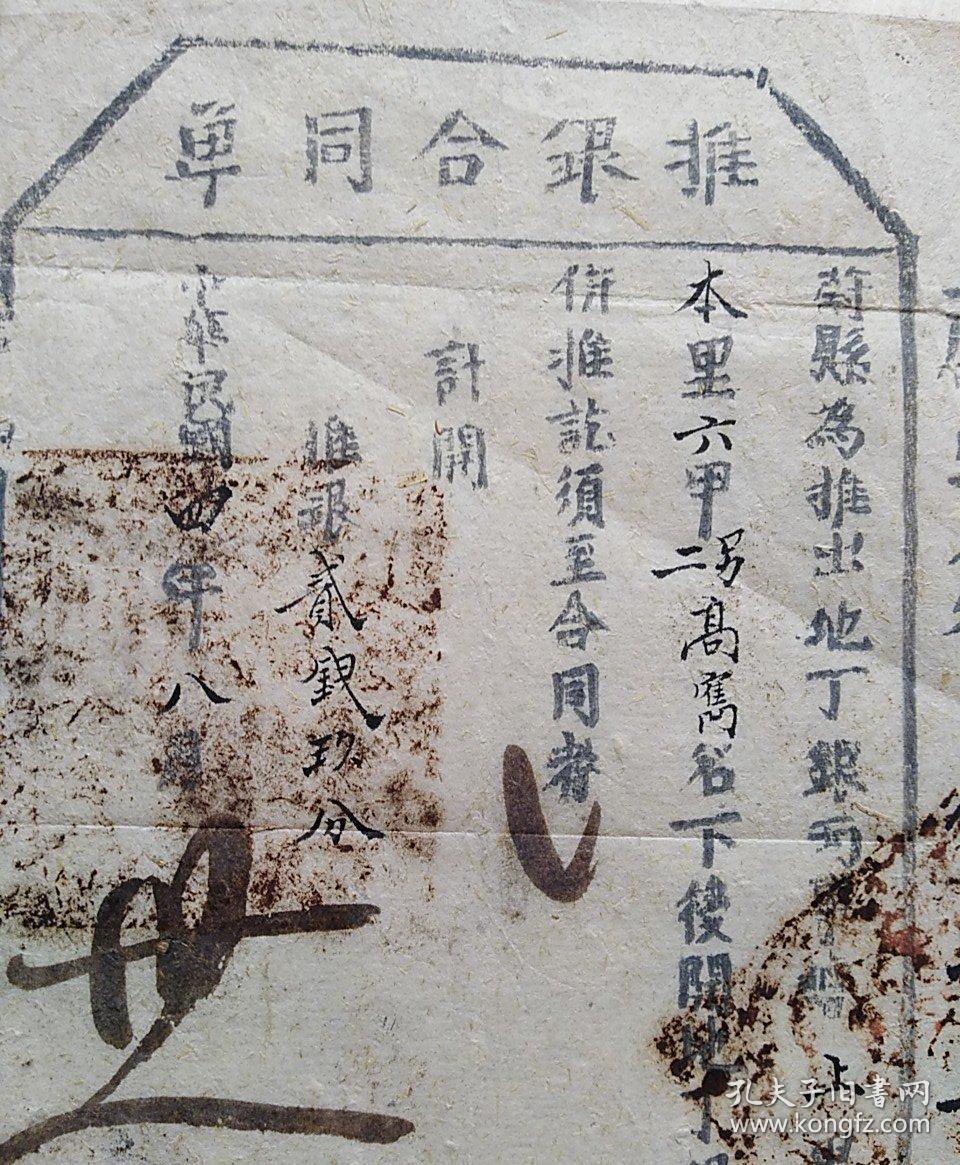 推銀合同單
蔚縣為推出地丁銀
本里六甲二另高寯名下後開地丁
併推訖須至合同者
計開
推銀貳錢玖分
中華民國四年八月
孔夫子旧书网
www.kongfz.com